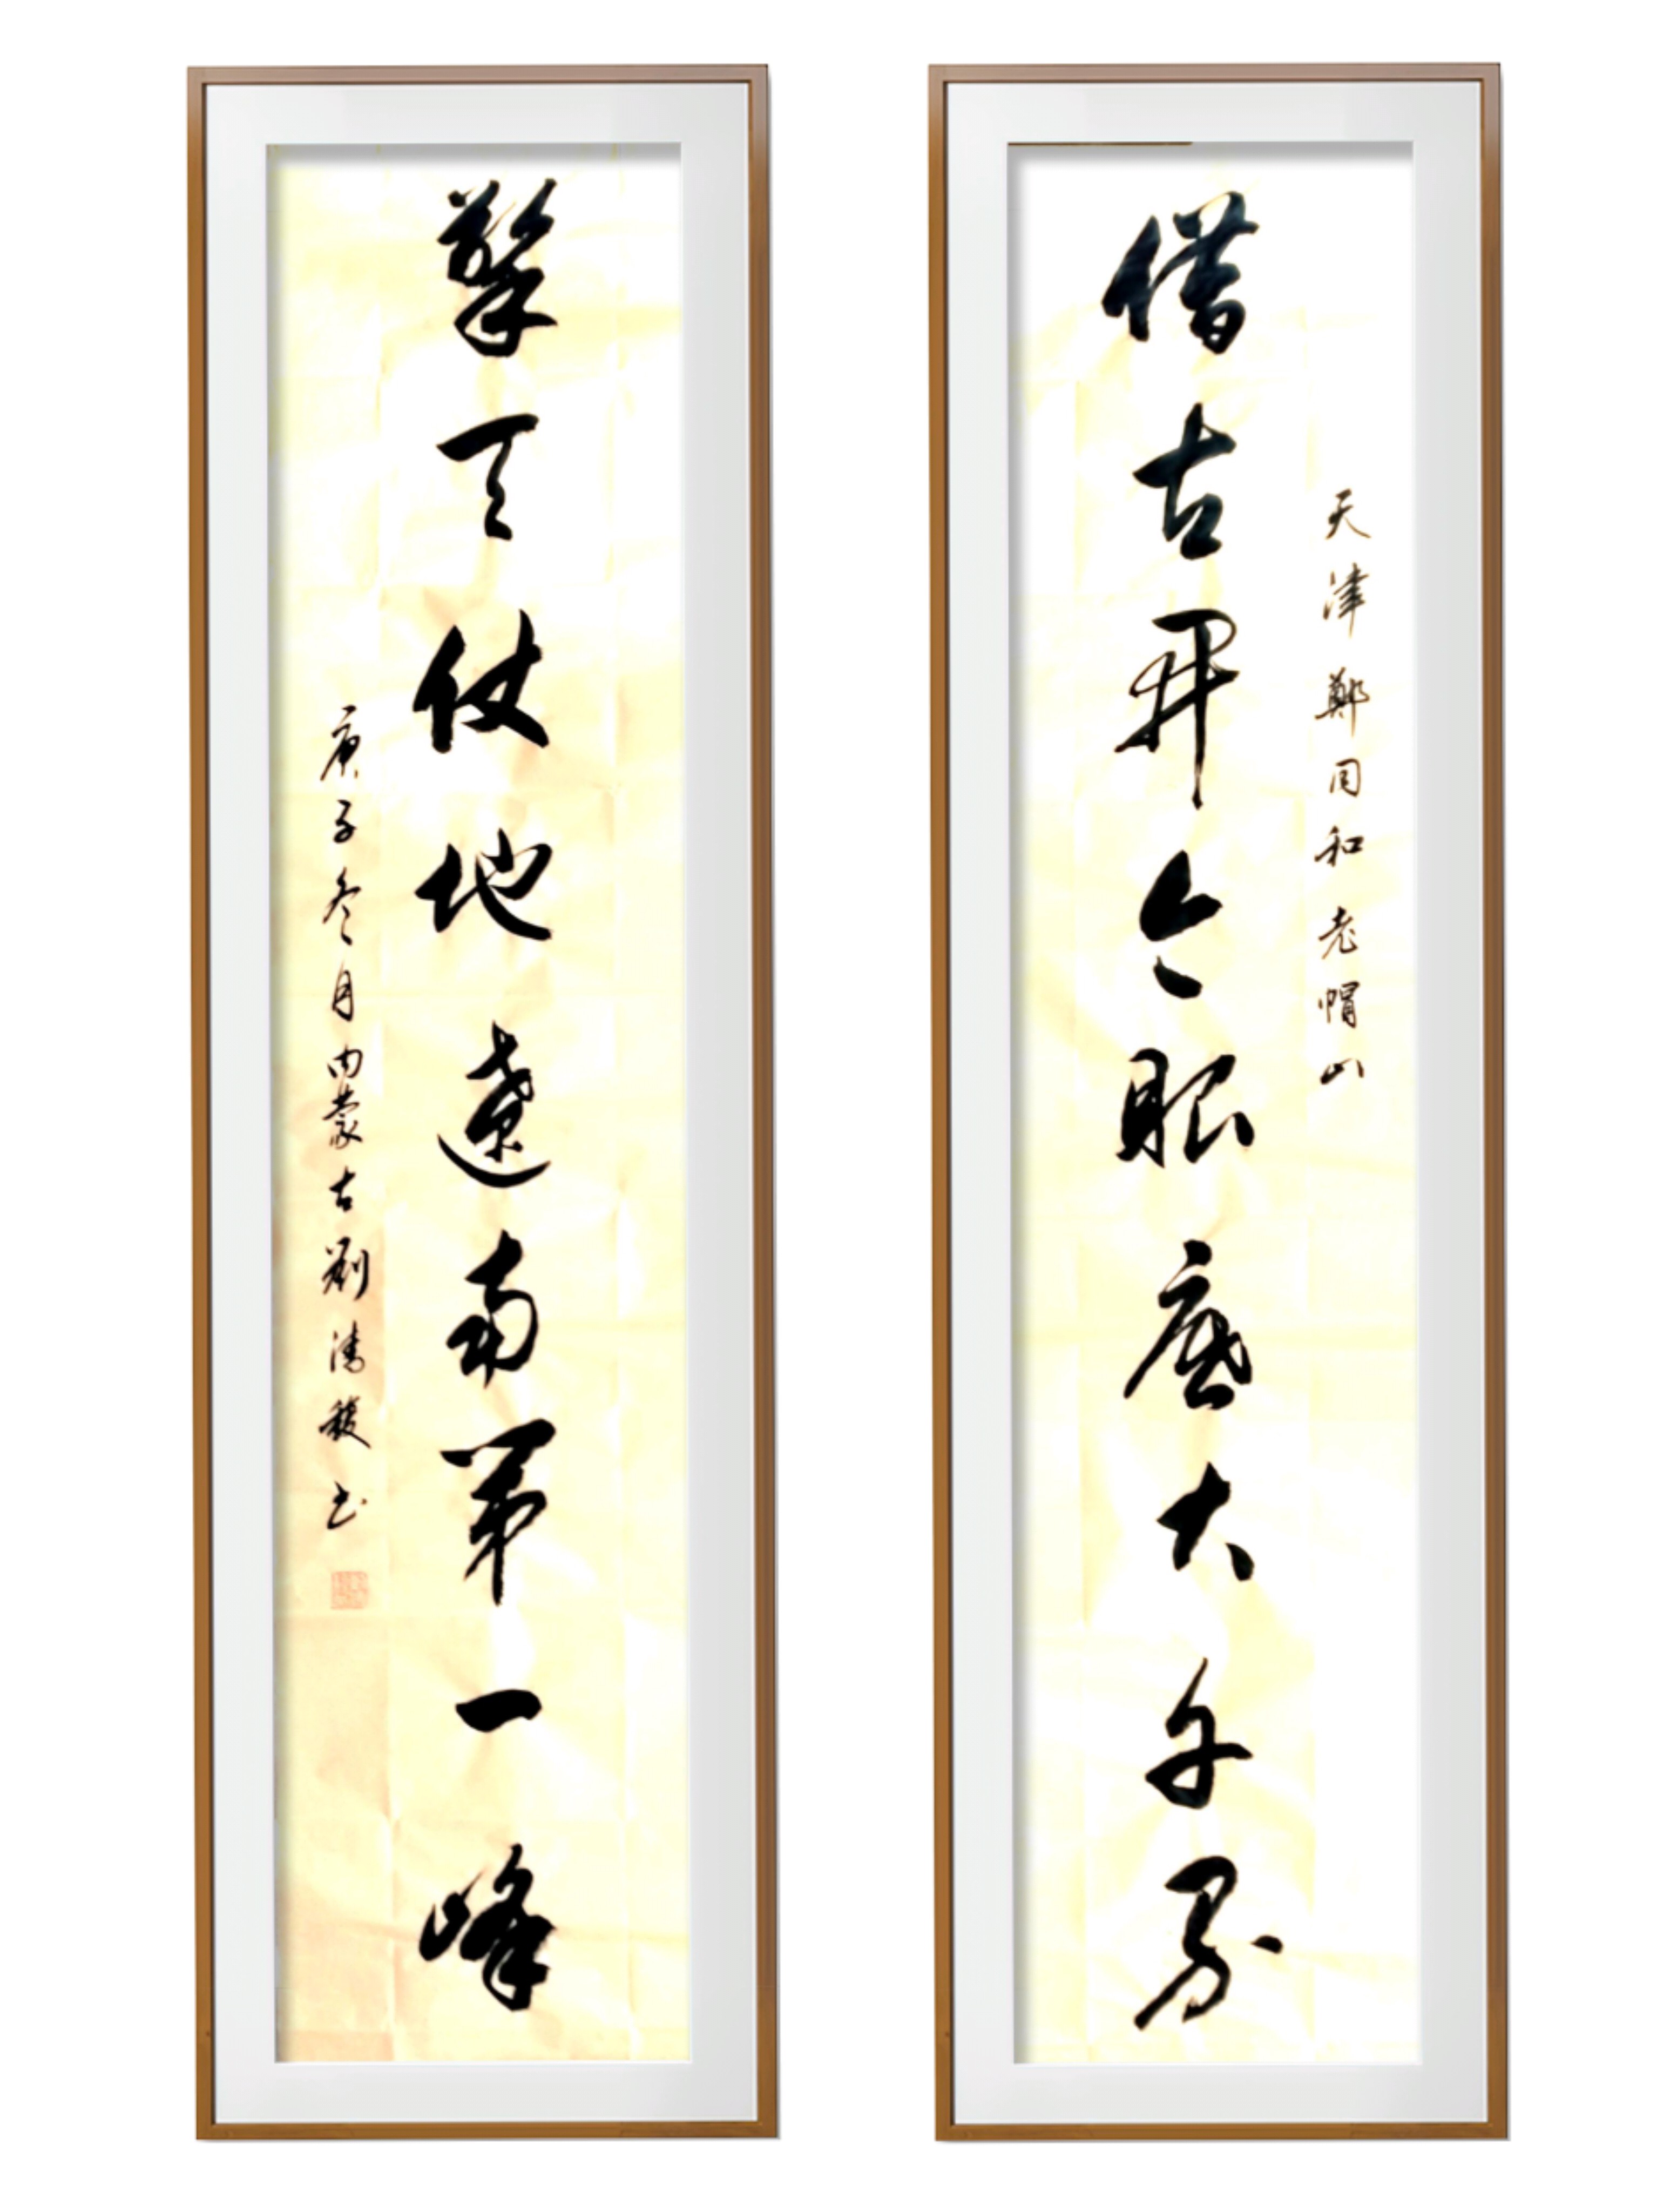 天津鄭同和老帽山
借古开今眼底大千男
擎天仗地遼南第一峰
庚子冬月内蒙古劉清馥书